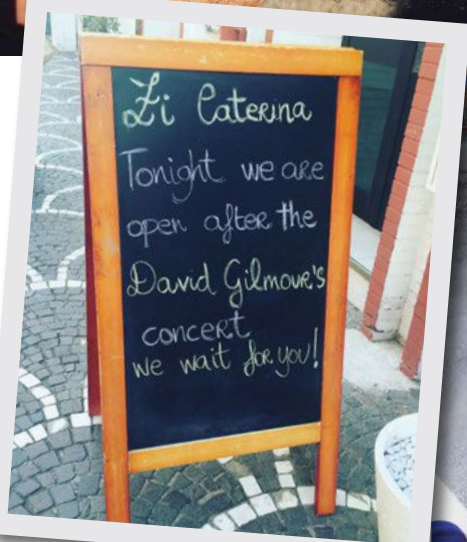 Zi Caterina
Tonight we are
open after the
David Gilmour's
concert
we wait for you!